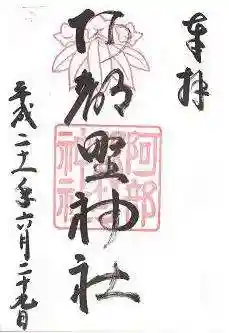 奉拝
阿部野神社
平成二十一年六月二十九日
阿部
野
神社